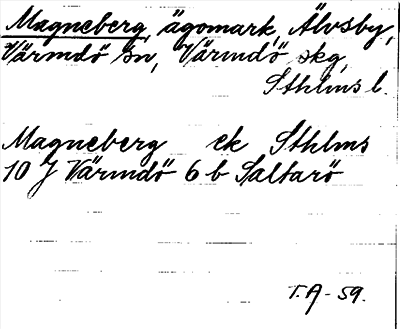 Magneberg, ägomark, Älvsby,
Värmdö sn, Värmdö skg,
Sthlms l.
Magneberg ek Sthlms
10 J Värmdö 6 b Saltarö
T.A-59.